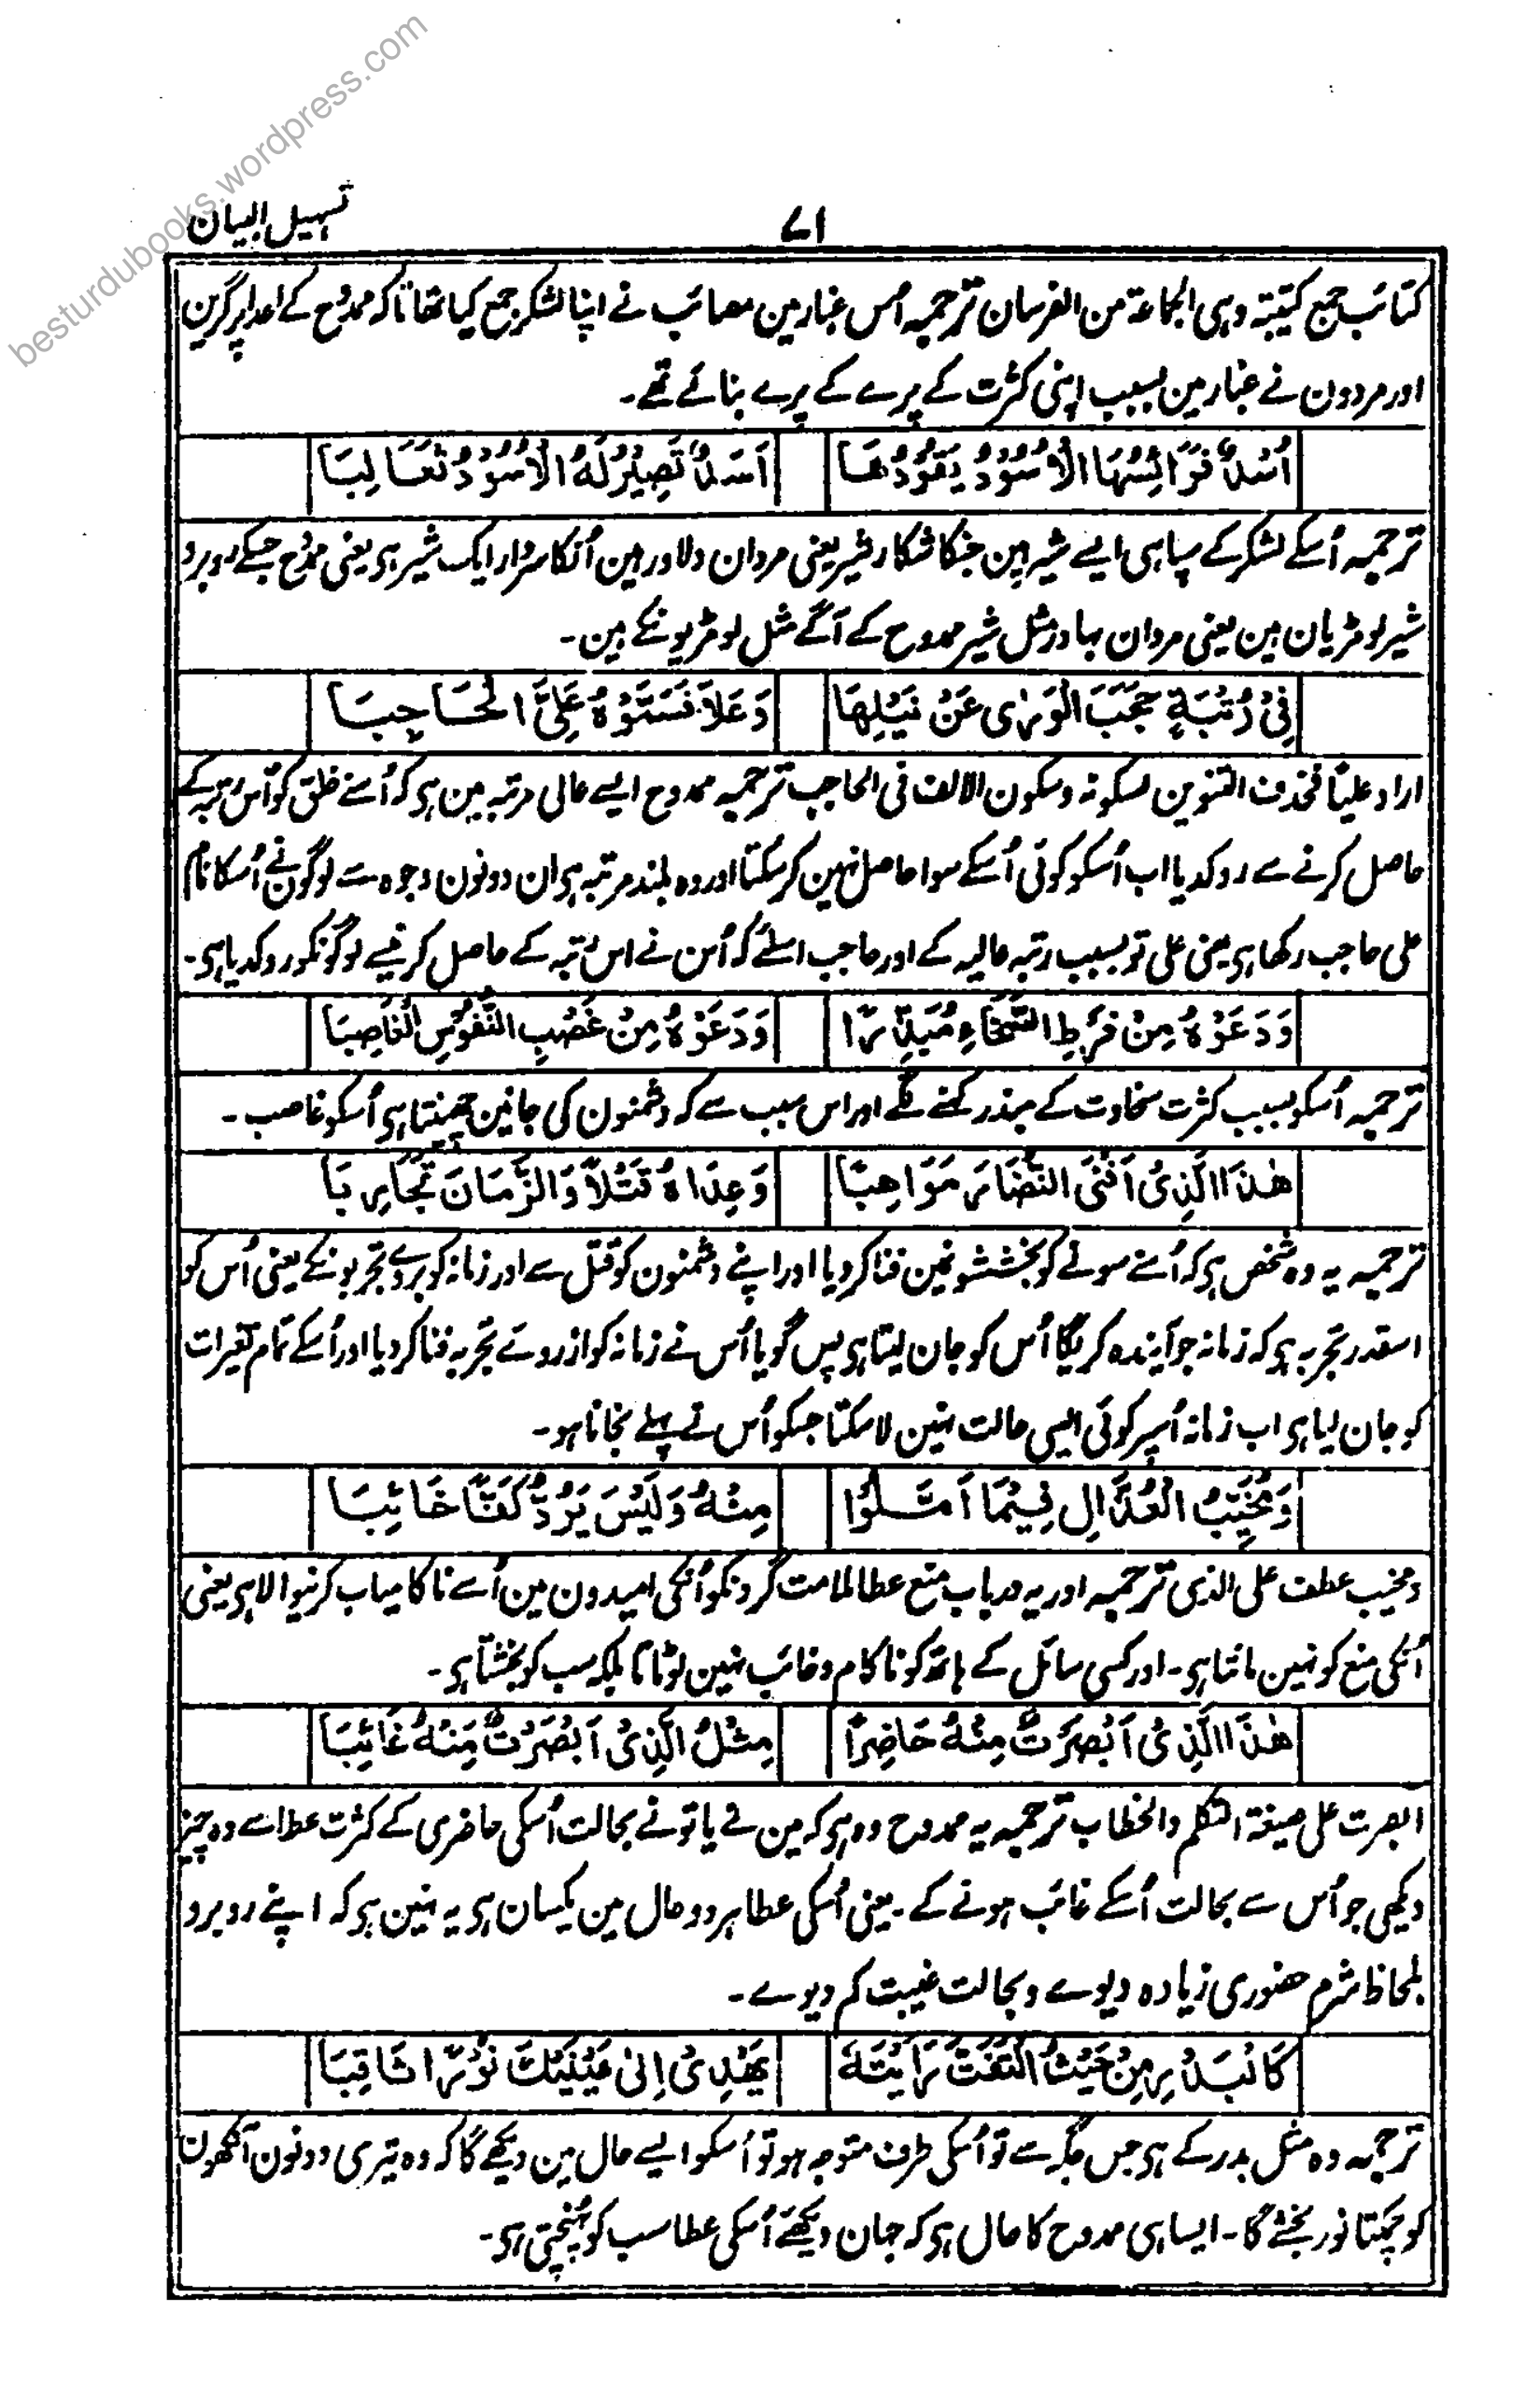 besturdubooks.wordpress.com
تسہیل البیان
۷۱
کتائب جمع کتیبتہ وہی الجماعۃ من الفرسان ترجمہ اُس غبار مین مصائب نے اپنا لشکر جمع کیا تھا تاکہ ممدوح کے اعدا پر گرین
اور مردون نے غبار مین بسبب اپنی کثرت کے پرے کے پرے بنائے تھے۔
اُسْدٌ فَرَائِسُهَا الْاُسُوْدُ يَقُوْدُهَا اَسَدٌ تَصِيْرُ لَهُ الْاُسُوْدُ ثَعَالِبَا
ترجمہ اُسکے لشکر کے سپاہی ایسے شیر ہین جنکا شکار شیر یعنی مردان دلاور ہین اُنکا سردار ایک شیر ہی یعنی ممدوح جسکے روبرو
شیر لومڑیان ہین یعنی مردان بہادر مثل شیر ممدوح کے آگے مثل لومڑیونکے ہین۔
فِیْ رُتْبَةٍ حَجَبَ الْوَرٰى عَنْ نَيْلِهَا وَعَلَا فَسَمَّوْهُ عَلِيَّ الْحَاجِبَا
اراد علیًا فحذف التنوین لسکونہ وسکون الالف فی الحاجب ترجمہ ممدوح ایسے عالی مرتبہ مین ہی کہ اُسنے خلق کو اُس رتبہ کے
حاصل کرنے سے روکدیا اب اُسکو کوئی اُسکے سوا حاصل نہین کرسکتا اور وہ بلند مرتبہ ہی ان دونون وجوہ سے لوگون نے اُسکا نام
علی حاجب رکھا ہی یعنی علی تو بسبب رتبہ عالیہ کے اور حاجب اسلئے کہ اُس نے اس رتبہ کے حاصل کرنیسے لوگونکو روکدیا ہی۔
وَدَعَوْهُ مِنْ فَرْطِ السَّخَاءِ مُبَذِّرًا وَدَعَوْهُ مِنْ غَصْبِ النُّفُوْسِ الْغَاصِبَا
ترجمہ اُسکو بسبب کثرت سخاوت کے مبذر کہنے لگے اور اس سبب سے کہ دشمنون کی جانین چھینتا ہی اُسکو غاصب۔
هٰذَا الَّذِیْ اَفْنَی النُّضَارَ مَوَاهِبًا وَعِدَاهُ قَتْلًا وَالزَّمَانَ تَجَارِبَا
ترجمہ یہ وہ شخص ہی کہ اُسنے سونے کو بخششونمین فنا کردیا اور اپنے دشمنون کو قتل سے اور زمانہ کو بروے تجربونکے یعنی اُس کو
اسقدر تجربہ ہی کہ زمانہ جو آیندہ کریگا اُس کو جان لیتا ہی پس گویا اُس نے زمانہ کو ازروئے تجربہ فنا کردیا اور اُسکے تمام تغیرات
کو جان لیا ہی اب زمانہ اُسپر کوئی ایسی حالت نہین لاسکتا جسکو اُس نے پہلے نجانا ہو۔
وَمُخَيِّبُ الْعُذَّالِ فِيْمَا اَمَّلُوْا مِنْهُ وَلَيْسَ يَرُدُّ كَفًّا خَائِبَا
ومخیب عطف علی الذی ترجمہ اور یہ درباب منع عطا ملامت گرونکو اُنکی امیدون مین اُسے ناکامیاب کرنیوالا ہی یعنی
اُنکی منع کو نہین مانتا ہی۔ اور کسی سائل کے ہاتھ کو ناکام و خائب نہین لوٹاتا بلکہ سب کو بخشتا ہی۔
هٰذَا الَّذِیْ اَبْصَرْتُ مِنْهُ حَاضِرًا مِثْلُ الَّذِیْ اَبْصَرْتُ مِنْهُ غَائِبَا
ابصرت علی صیغۃ المتکلم والخطاب ترجمہ یہ ممدوح وہ ہی کہ مین نے یا تو نے بحالت اُسکی حاضری کے کثرت عطا سے وہ چیز
دیکھی جو اُس سے بحالت اُسکے غائب ہونے کے۔ یعنی اُسکی عطا ہر دو حال مین یکسان ہی یہ نہین ہی کہ اپنے روبرو
بلحاظ شرم حضوری زیادہ دیوے و بحالت غیبت کم دیوے۔
كَالْبَدْرِ مِنْ حَيْثُ الْتَفَتَّ رَاَيْتَهٗ يُهْدِیْ اِلٰى عَيْنَيْكَ نُوْرًا ثَاقِبَا
ترجمہ وہ مثل بدر کے ہی جس جگہ سے تو اُسکی طرف متوجہ ہو تو اُسکو ایسے حال مین دیکھے گا کہ وہ تیری دونون آنکھون
کو چمکتا نور بخشے گا۔ ایسا ہی ممدوح کا حال ہی کہ جہان دیکھئے اُسکی عطا سب کو پہنچتی ہی۔